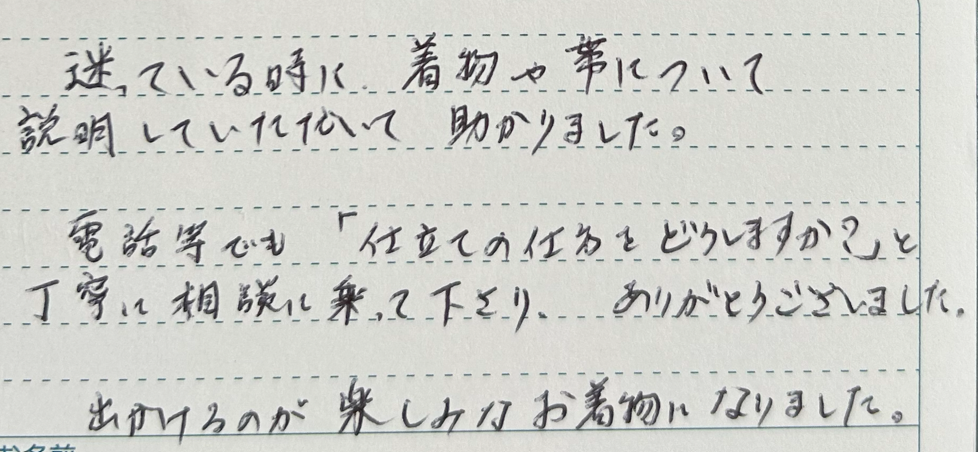 迷っている時に、着物や帯について
説明していただいて 助かりました。
電話等でも 「仕立ての仕方をどうしますか?」と
丁寧に相談に乗って下さり、 ありがとうございました。
出かけるのが 楽しみなお着物になりました。
お名前